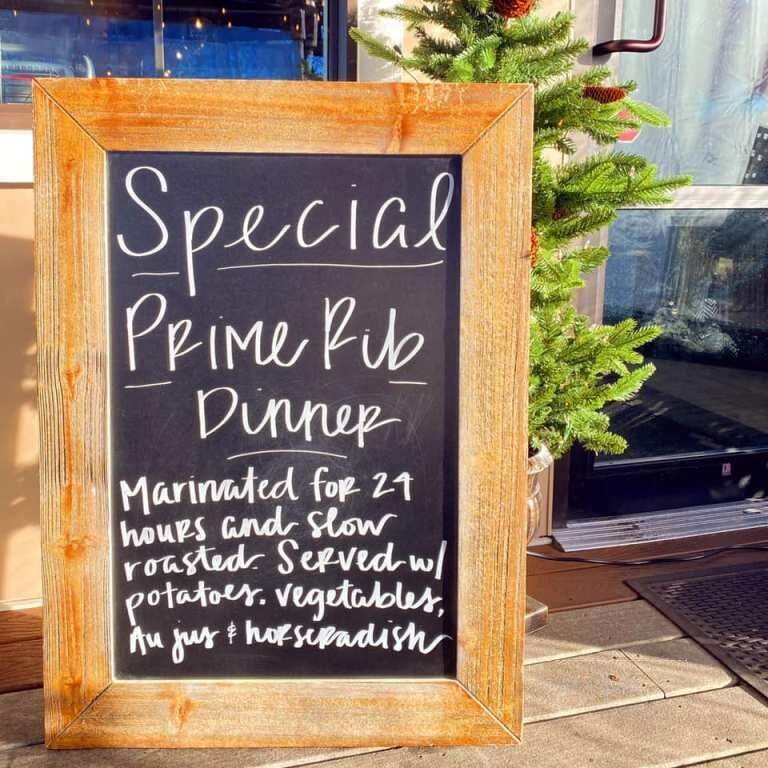 Special
Prime Rib
Dinner
Marinated for 24
hours and slow
roasted. Served w/
potatoes. vegetables,
Au jus & horseradish